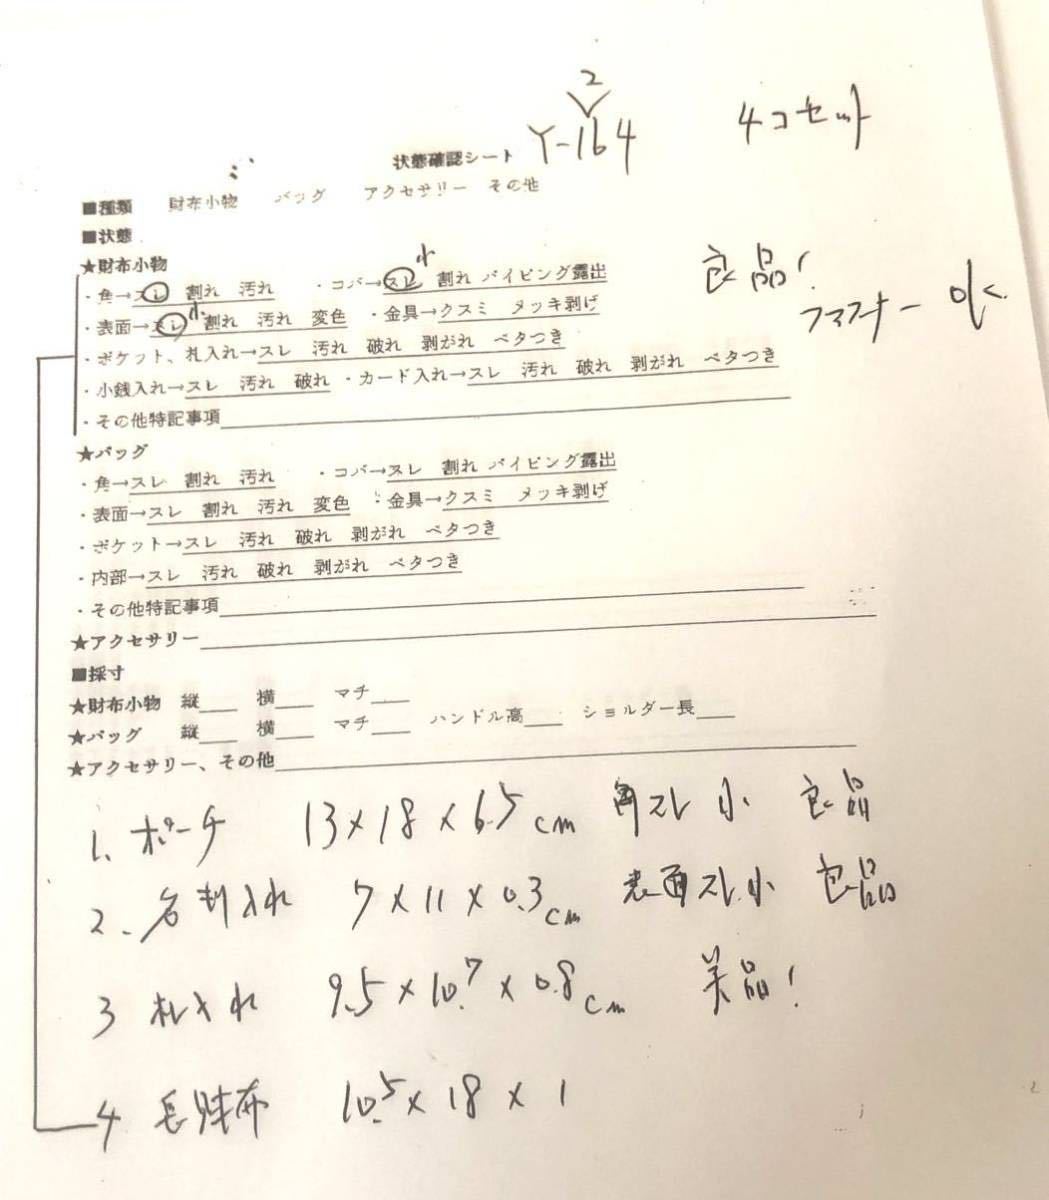 2
状態確認シート Y-164 4コセット
■種類 財布小物 バッグ アクセサリー その他
■状態
★財布小物
・角→スレ 割れ 汚れ ・コバ→スレ 小 割れ パイピング露出 良品!
・表面→スレ 小 割れ 汚れ 変色 ・金具→クスミ メッキ剥げ ファスナー OK
・ポケット、札入れ→スレ 汚れ 破れ 剥がれ ベタつき
・小銭入れ→スレ 汚れ 破れ ・カード入れ→スレ 汚れ 破れ 剥がれ ベタつき
・その他特記事項
★バッグ
・角→スレ 割れ 汚れ ・コバ→スレ 割れ パイピング露出
・表面→スレ 割れ 汚れ 変色 ・金具→クスミ メッキ剥げ
・ポケット→スレ 汚れ 破れ 剥がれ ベタつき
・内部→スレ 汚れ 破れ 剥がれ ベタつき
・その他特記事項
★アクセサリー
■採寸
★財布小物 縦 横 マチ
★バッグ 縦 横 マチ ハンドル高 ショルダー長
★アクセサリー、その他
1、ポーチ 13×18×6.5cm 角スレ小 良品
2、名刺入れ 7×11×0.3cm 表面スレ小 良品
3 札入れ 9.5×10.7×0.8cm 美品!
4 長財布 10.5×18×1